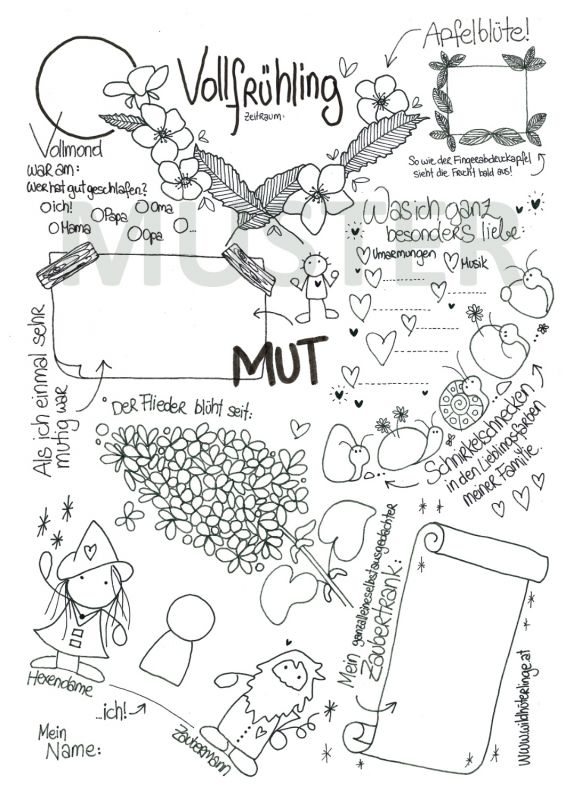 Vollfrühling
Zeitraum:
Apfelblüte!
So wie der Fingerabdruckapfel
sieht die Frucht bald aus!
Vollmond
war am:
Wer hat gut geschlafen?
ich!
Papa
Oma
Mama
Opa
...
MUSTER
Was ich ganz
besonders liebe:
Umarmungen
Musik
Als ich einmal sehr
mutig war
MUT
Der Flieder blüht seit:
Schnirkelschnecken
in den Lieblingsfarben
meiner Familie.
Mein ganzalleineselbstausgedachter
Zaubertrank:
Hexendame
...ich!
Zaubermann
Mein
Name:
www.wildniterlinge.at